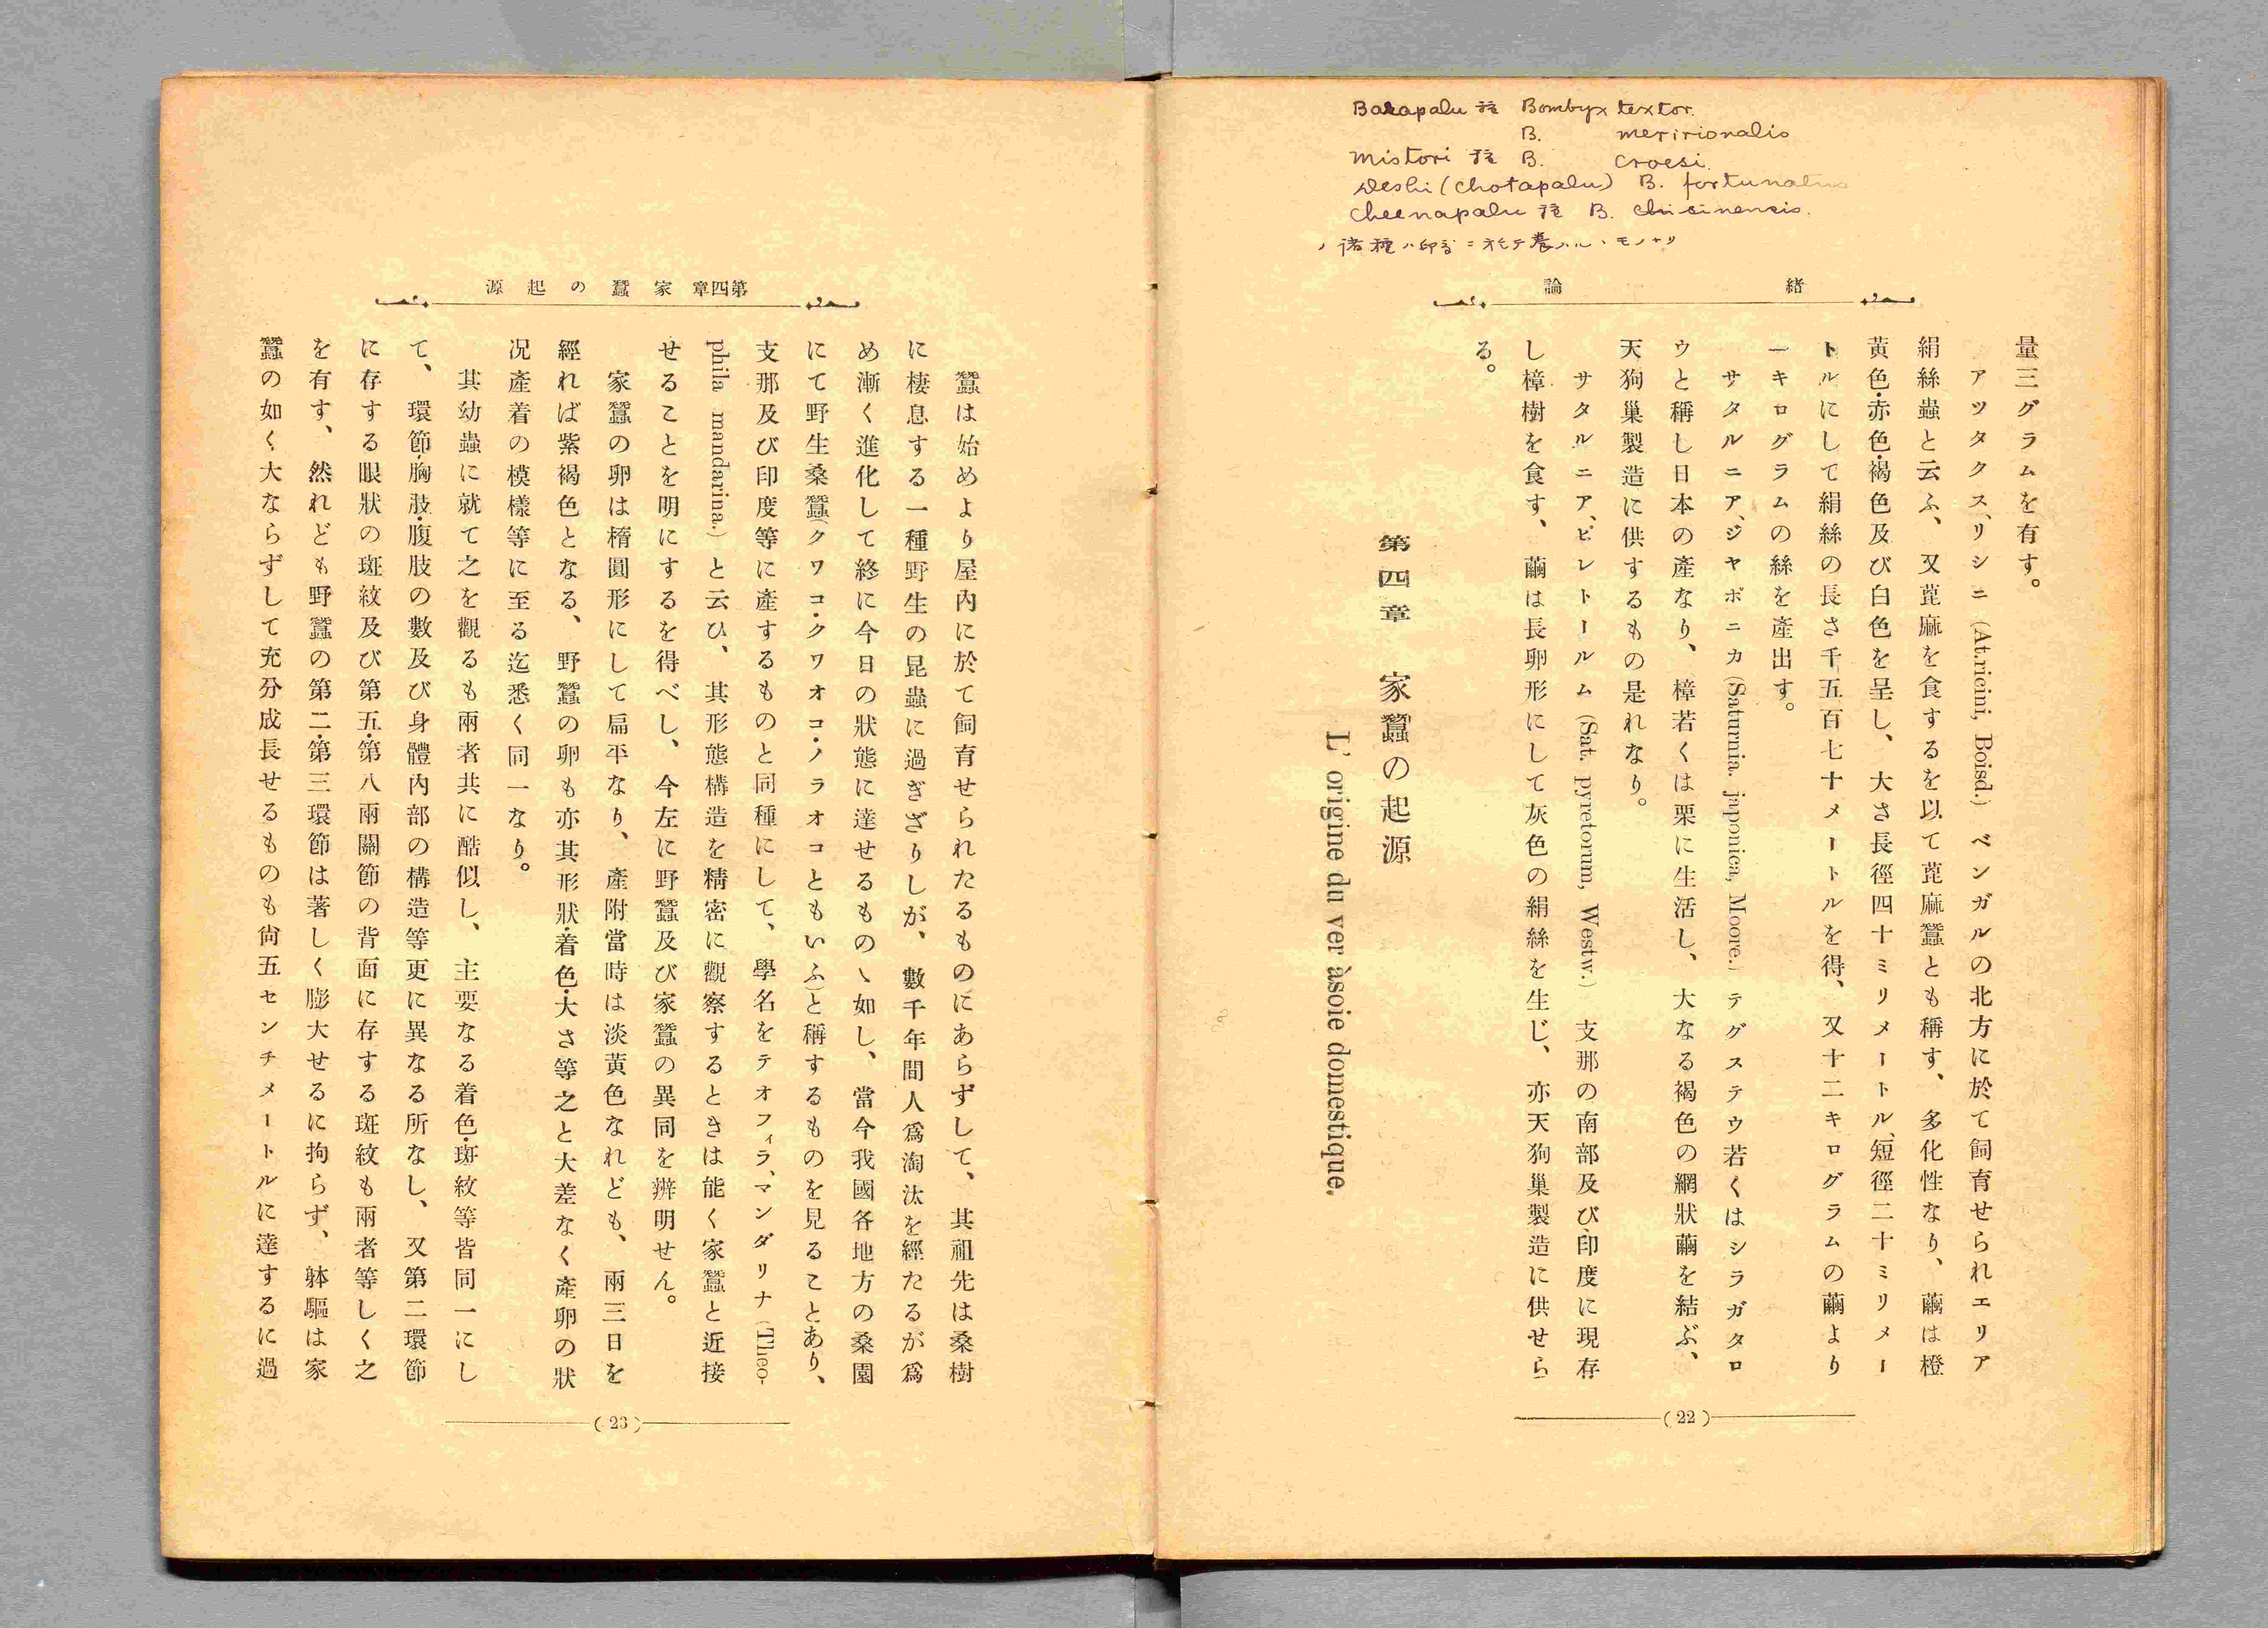 Barapalu 種 Bombyx textor.
B. meririonalis
Mistori 種 B. croesi.
Deshi (chotapalu) B. fortunatus
Cheenapalu 種 B. sinensis.
緒論
量三グラムを有す。
アツタクス、リシニ (At.ricini, Boisd.) ベンガルの北方に於て飼育せられエリア
絹絲蟲と云ふ、又蓖麻を食するを以て蓖麻蠶とも稱す、多化性なり、繭は橙
黃色・赤色・褐色及び白色を呈し、大さ長徑四十ミリメートル、短徑二十ミリメー
トルにして絹絲の長さ千五百七十メートルを得、又十二キログラムの繭より
一キログラムの絲を產出す。
サタルニア、ジヤポニカ (Saturnia. japonica, Moore.) テグステウ若くはシラガタロ
ウと稱し日本の產なり、樟若くは栗に生活し、大なる褐色の網狀繭を結ぶ、
天狗巢製造に供するもの是れなり。
サタルニア、ピレトールム (Sat. pyretorum, Westw.) 支那の南部及び印度に現存
し樟樹を食す、繭は長卵形にして灰色の絹絲を生じ、亦天狗巢製造に供せら
る。
第四章 家蠶の起源
L' origine du ver àsoie domestique.
(22)
第四章 家蠶の起源
蠶は始めより屋內に於て飼育せられたるものにあらずして、其祖先は桑樹
に棲息する一種野生の昆蟲に過ぎざりしが、數千年間人爲淘汰を經たるが爲
め漸く進化して終に今日の狀態に達せるものゝ如し、當今我國各地方の桑園
にて野生桑蠶(クワコ・クワオコ・ノラオコともいふ)と稱するものを見ることあり、
支那及び印度等に產するものと同種にして、學名をテオフィラ、マンダリナ (Theo-
phila mandarina.) と云ひ、其形態構造を精密に觀察するときは能く家蠶と近接
せることを明にするを得べし、今左に野蠶及び家蠶の異同を辨明せん。
家蠶の卵は楕圓形にして扁平なり、產附當時は淡黃色なれども、兩三日を
經れば紫褐色となる、野蠶の卵も亦其形狀・着色・大さ等之と大差なく產卵の狀
况產着の模樣等に至る迄悉く同一なり。
其幼蟲に就て之を觀るも兩者共に酷似し、主要なる着色・斑紋等皆同一にし
て、環節・胸肢・腹肢の數及び身體內部の構造等更に異なる所なし、又第二環節
に存する眼狀の斑紋及び第五・第八兩關節の背面に存する斑紋も兩者等しく之
を有す、然れども野蠶の第二・第三環節は著しく膨大せるに拘らず、躰軀は家
蠶の如く大ならずして充分成長せるものも尙五センチメートルに達するに過
(23)